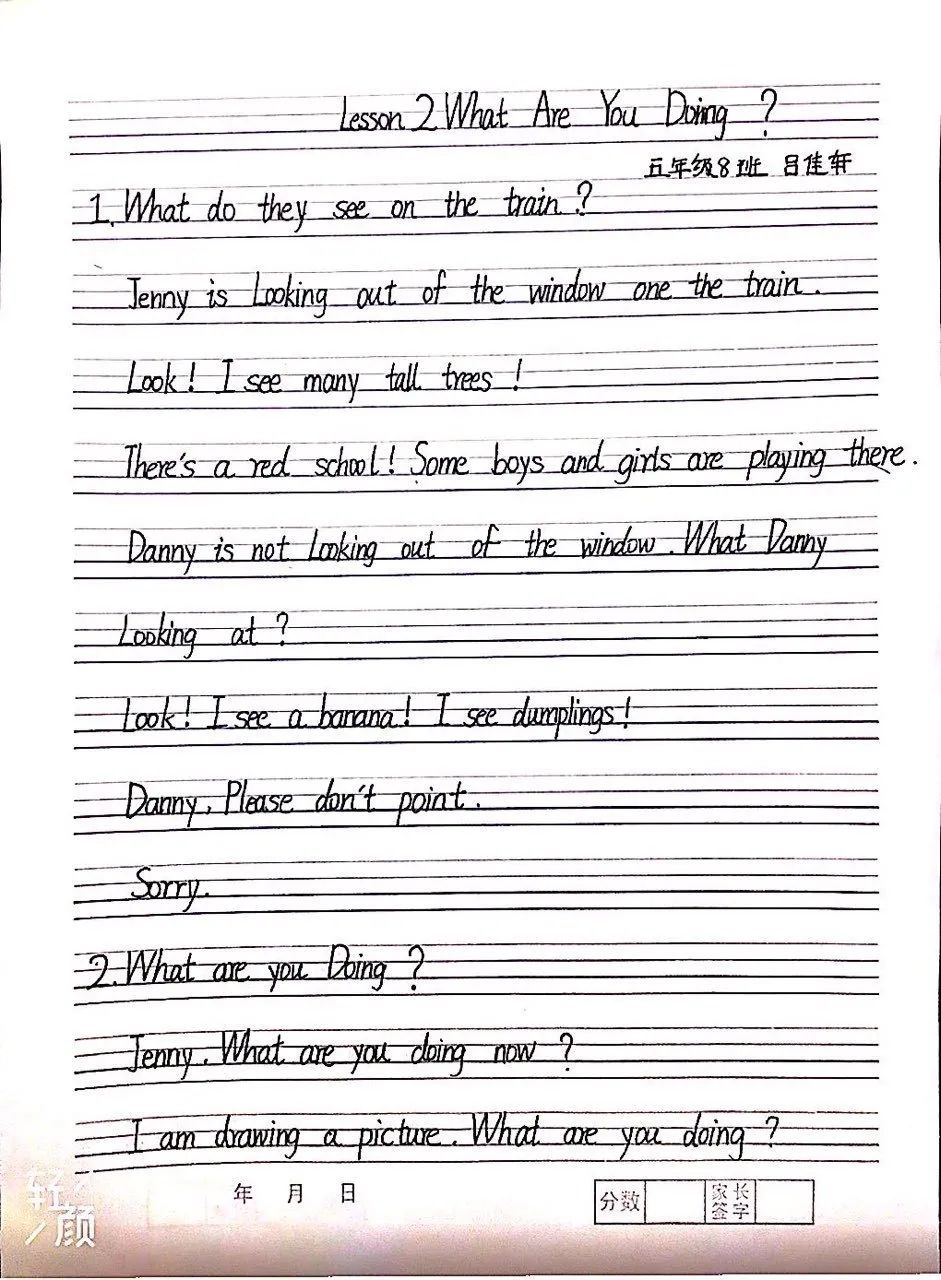 Lesson 2 What Are You Doing ?
五年级8班 吕佳轩
1. What do they see on the train ?
Jenny is Looking out of the window one the train .
Look ! I see many tall trees !
There's a red school ! Some boys and girls are playing there .
Danny is not Looking out of the window . What Danny
Looking at ?
Look ! I see a banana ! I see dumplings !
Danny , Please don't point .
Sorry .
2. What are you Doing ?
Jenny . What are you doing now ?
I am drawing a picture . What are you doing ?
年 月 日
分数 家长签字
轻颜